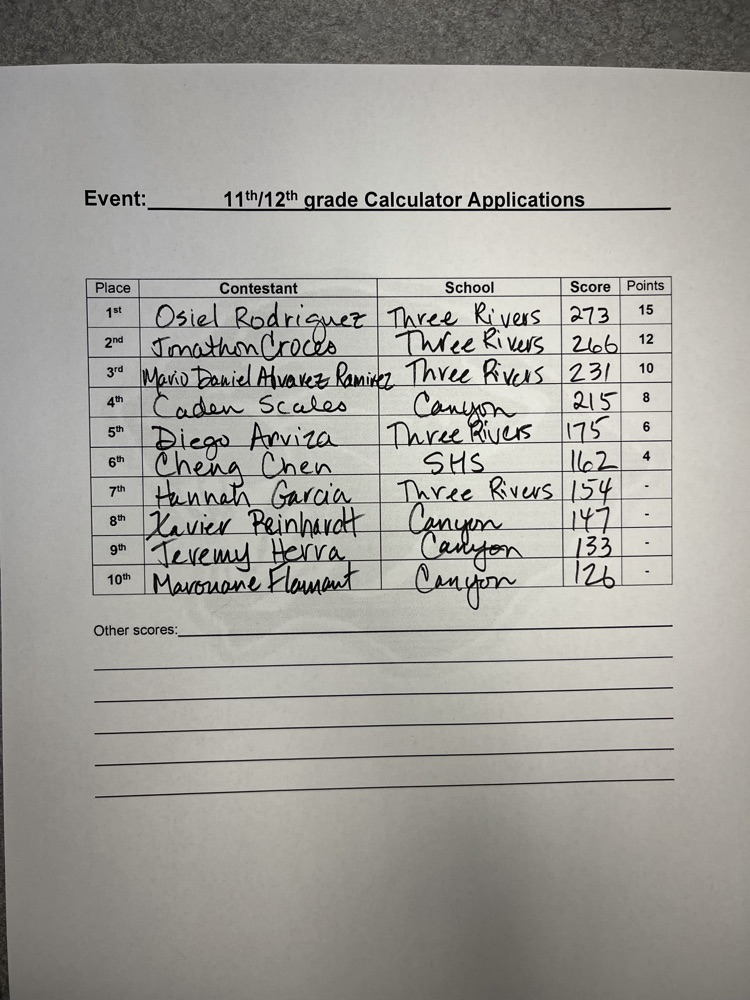 Event: 11th/12th grade Calculator Applications
Place Contestant School Score Points
1st Osiel Rodriguez Three Rivers 273 15
2nd Jonathon Croces Three Rivers 266 12
3rd Mario Daniel Alvarez Ramirez Three Rivers 231 10
4th Caden Scales Canyon 215 8
5th Diego Arviza Three Rivers 175 6
6th Cheng Chen SHS 162 4
7th Hannah Garcia Three Rivers 154 -
8th Xavier Reinhardt Canyon 147 -
9th Jeremy Herra Canyon 133 -
10th Marouane Flamant Canyon 126 -
Other scores: